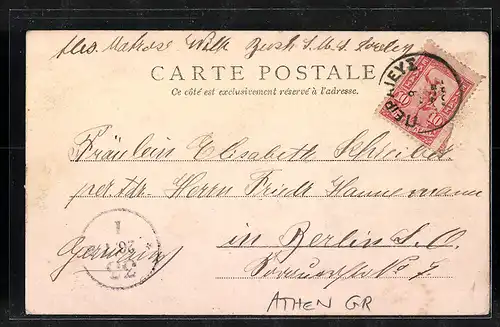 Abs. Matrose Wilh. Busch S.M.S. Loreley
CARTE POSTALE
Ce côté est exclusivement réservé à l'adresse.
ΠΕΙΡΑΙΕΥΣ
10 10
Fräulein Elisabeth Schreiber
per Adr. Herrn Friedr. Hannemann
in Berlin S.O.
Germany
No 7
ATHEN GR